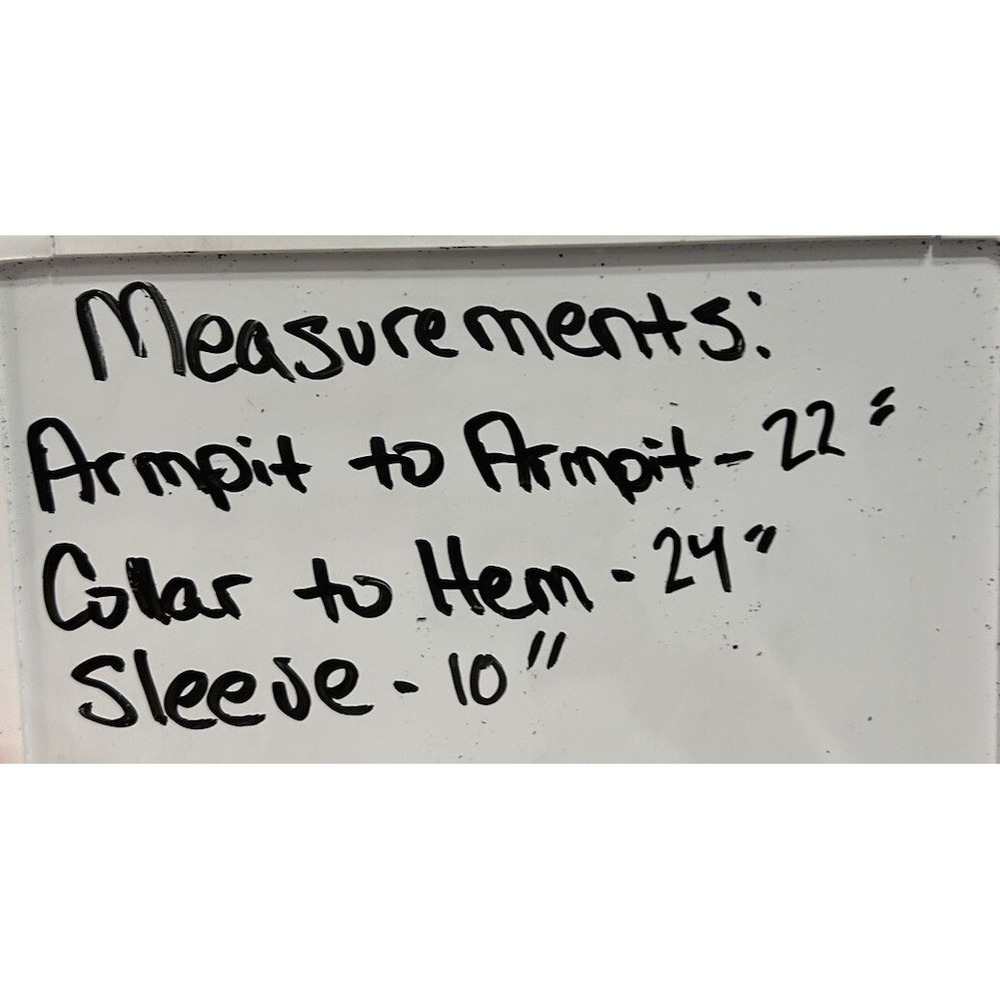 Measurements:
Armpit to Armpit - 22"
Collar to Hem - 24"
Sleeve - 10"